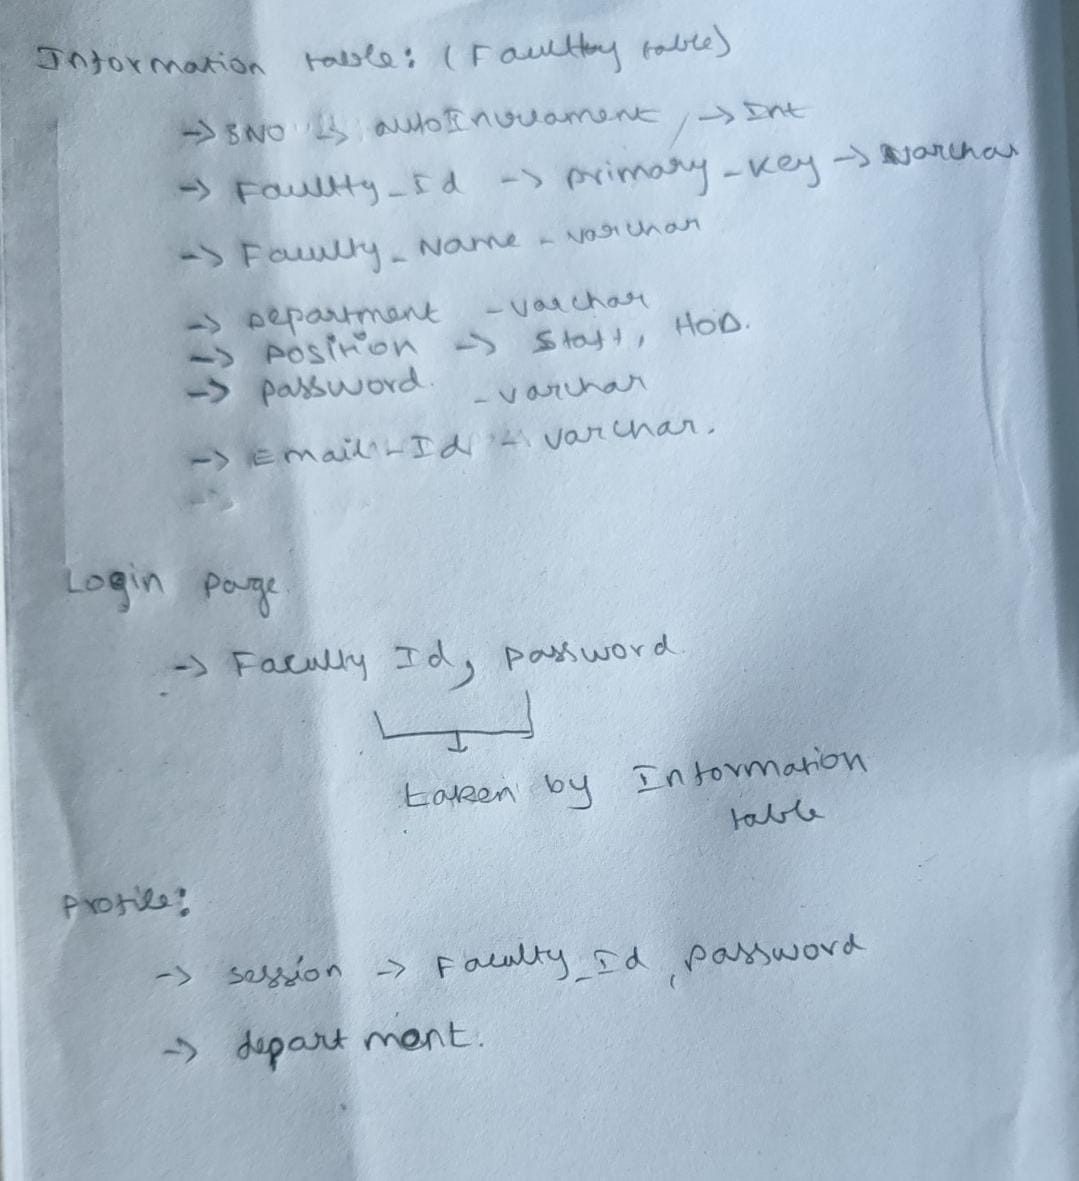 Information table: (Faultty table)
-> SNO -> autoIncrement, -> Int
-> Faultty_Id -> primary_key -> varchar
-> Faculty_Name - varchar
-> Department - varchar
-> position -> Staff, HOD.
-> password. - varchar
-> Email-Id - varchar.
->
Login page
-> Faculty Id, password.
taken by Information
table
profile:
-> session -> Faculty_Id, password
-> department.